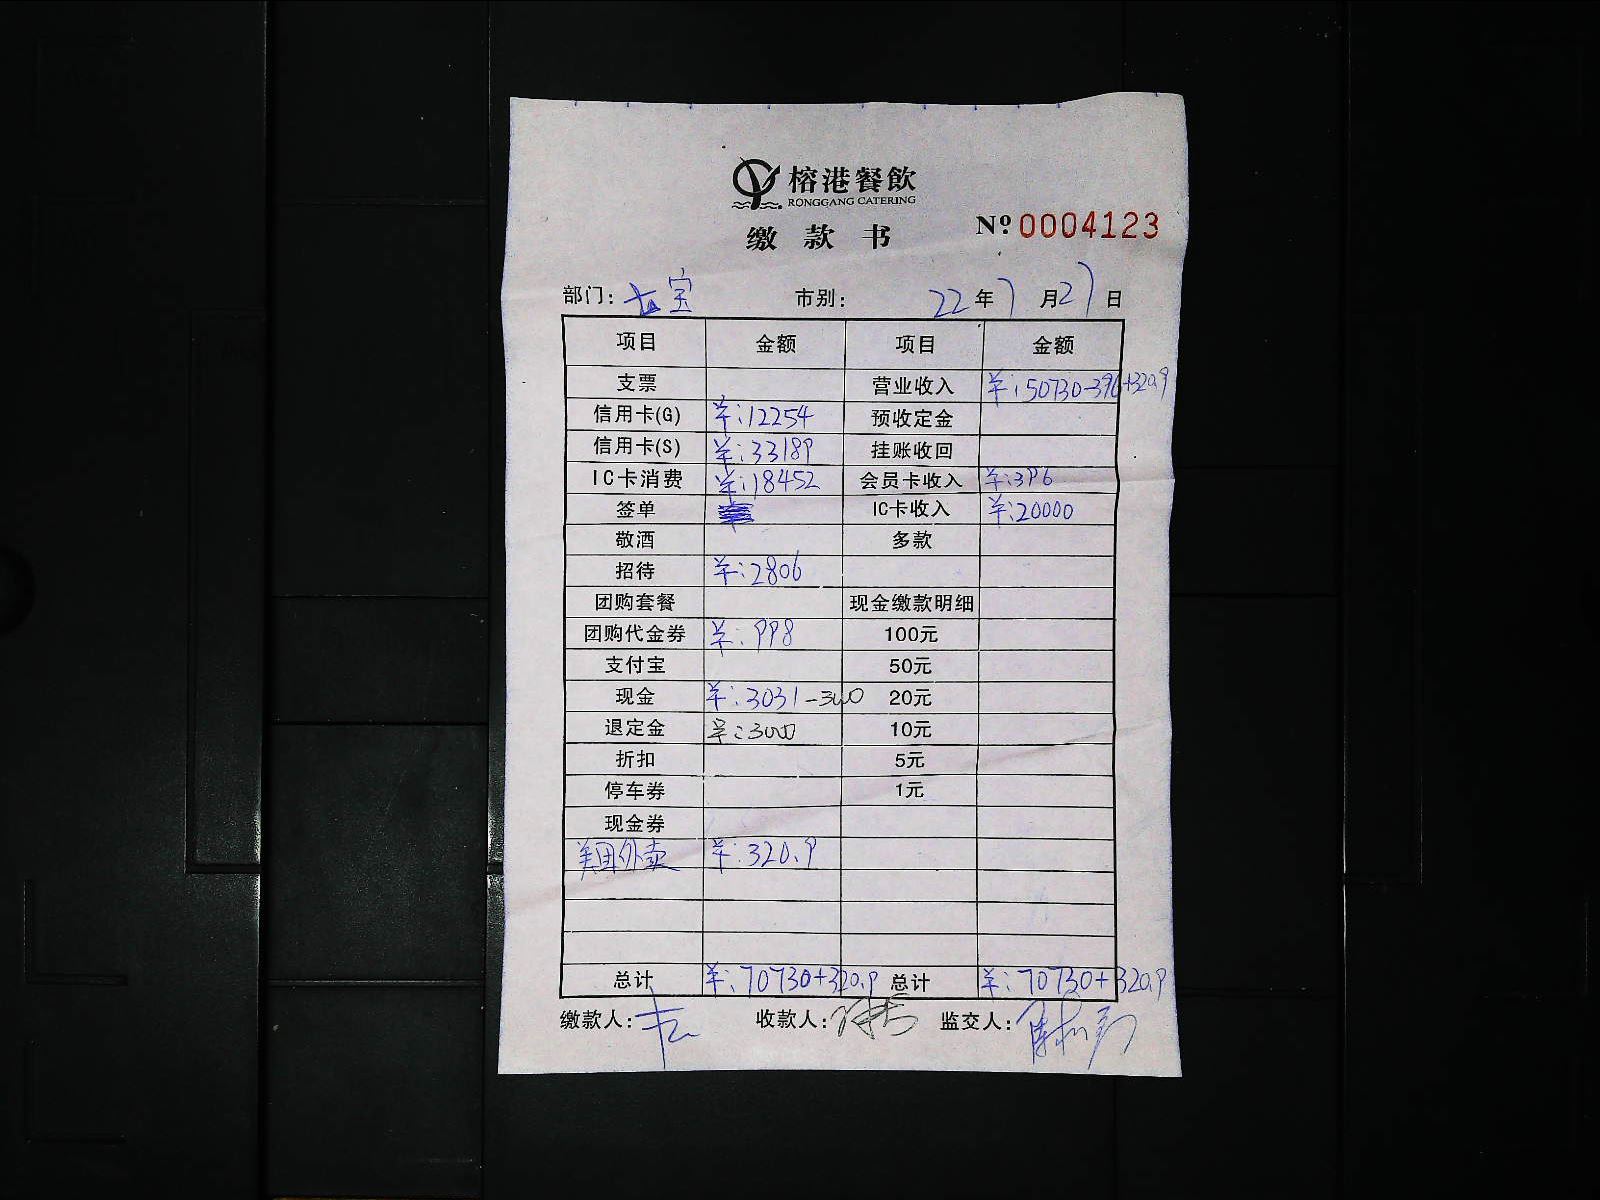 榕港餐飲
RONGGANG CATERING
缴款书 № 0004123
部门: 宝 市别: 22年7月27日
项目 金额 项目 金额
支票 营业收入 ¥:50730-396+320.9
信用卡(G) ¥:12254 预收定金
信用卡(S) ¥:33189 挂账收回
IC卡消费 ¥:18452 会员卡收入 ¥:396
签单 IC卡收入 ¥:20000
敬酒 多款
招待 ¥:2806
团购套餐 现金缴款明细
团购代金券 ¥:998 100元
支付宝 50元
现金 ¥:3031-300 20元
退定金 ¥:300 10元
折扣 5元
停车券 1元
现金券
美团外卖 ¥:320.9
总计 ¥:70730+320.9 总计 ¥:70730+320.9
缴款人: 收款人: 监交人: